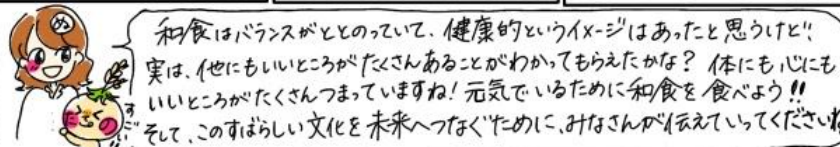 ぬ
和食はバランスがととのっていて、健康的というイメージはあったと思うけど‼
実は、他にもいいところがたくさんあることがわかってもらえたかな？ 体にも心にも
いいところがたくさんつまっていますね！元気でいるために和食を食べよう‼
そして、このすばらしい文化を未来へつなぐために、みなさんが伝えていってくださいね
すごい‼